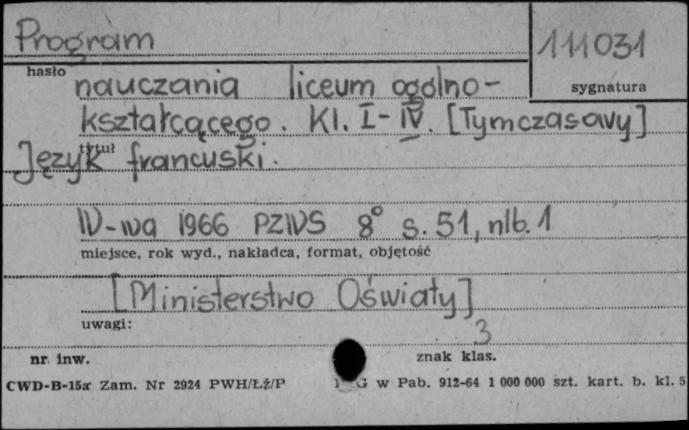 Program
111031
hasło
sygnatura
nauczania liceum ogólno-
kształcącego. Kl. I-IV. [Tymczasowy]
tytuł
Język francuski.
W-wa 1966 PZWS 8° s. 51, nlb. 1
miejsce, rok wyd., nakładca, format, objętość
[Ministerstwo Oświaty]
uwagi:
3
nr inw.
znak klas.
CWD-B-15a Zam. Nr 2924 PWH/Łź/P
G w Pab. 912-64 1 000 000 szt. kart. b. kl. 5